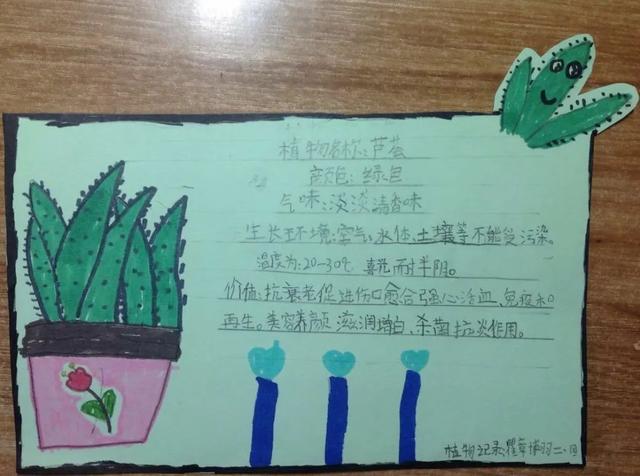 植物名称:芦荟
颜色:绿色
气味:淡淡清香味
生长环境:空气、水体、土壤等不能受污染。
温度为:20—30℃ 喜光而耐半阴。
价值:抗衰老促进伤口愈合强心活血、免疫和
再生。美容养颜 滋润增白、杀菌抗炎作用。
植物记录